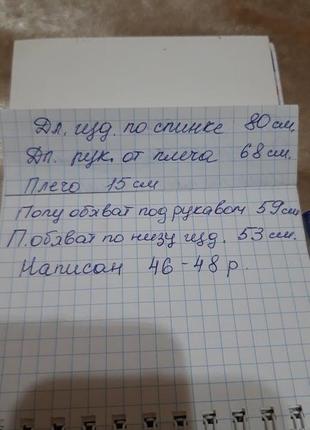 Дл. изд. по спинке 80 см.
Дл. рук. от плеча 68 см.
Плечо 15 см
Полу обхват под рукавом 59 см
П. обхват по низу изд. 53 см.
Написан 46-48 р.